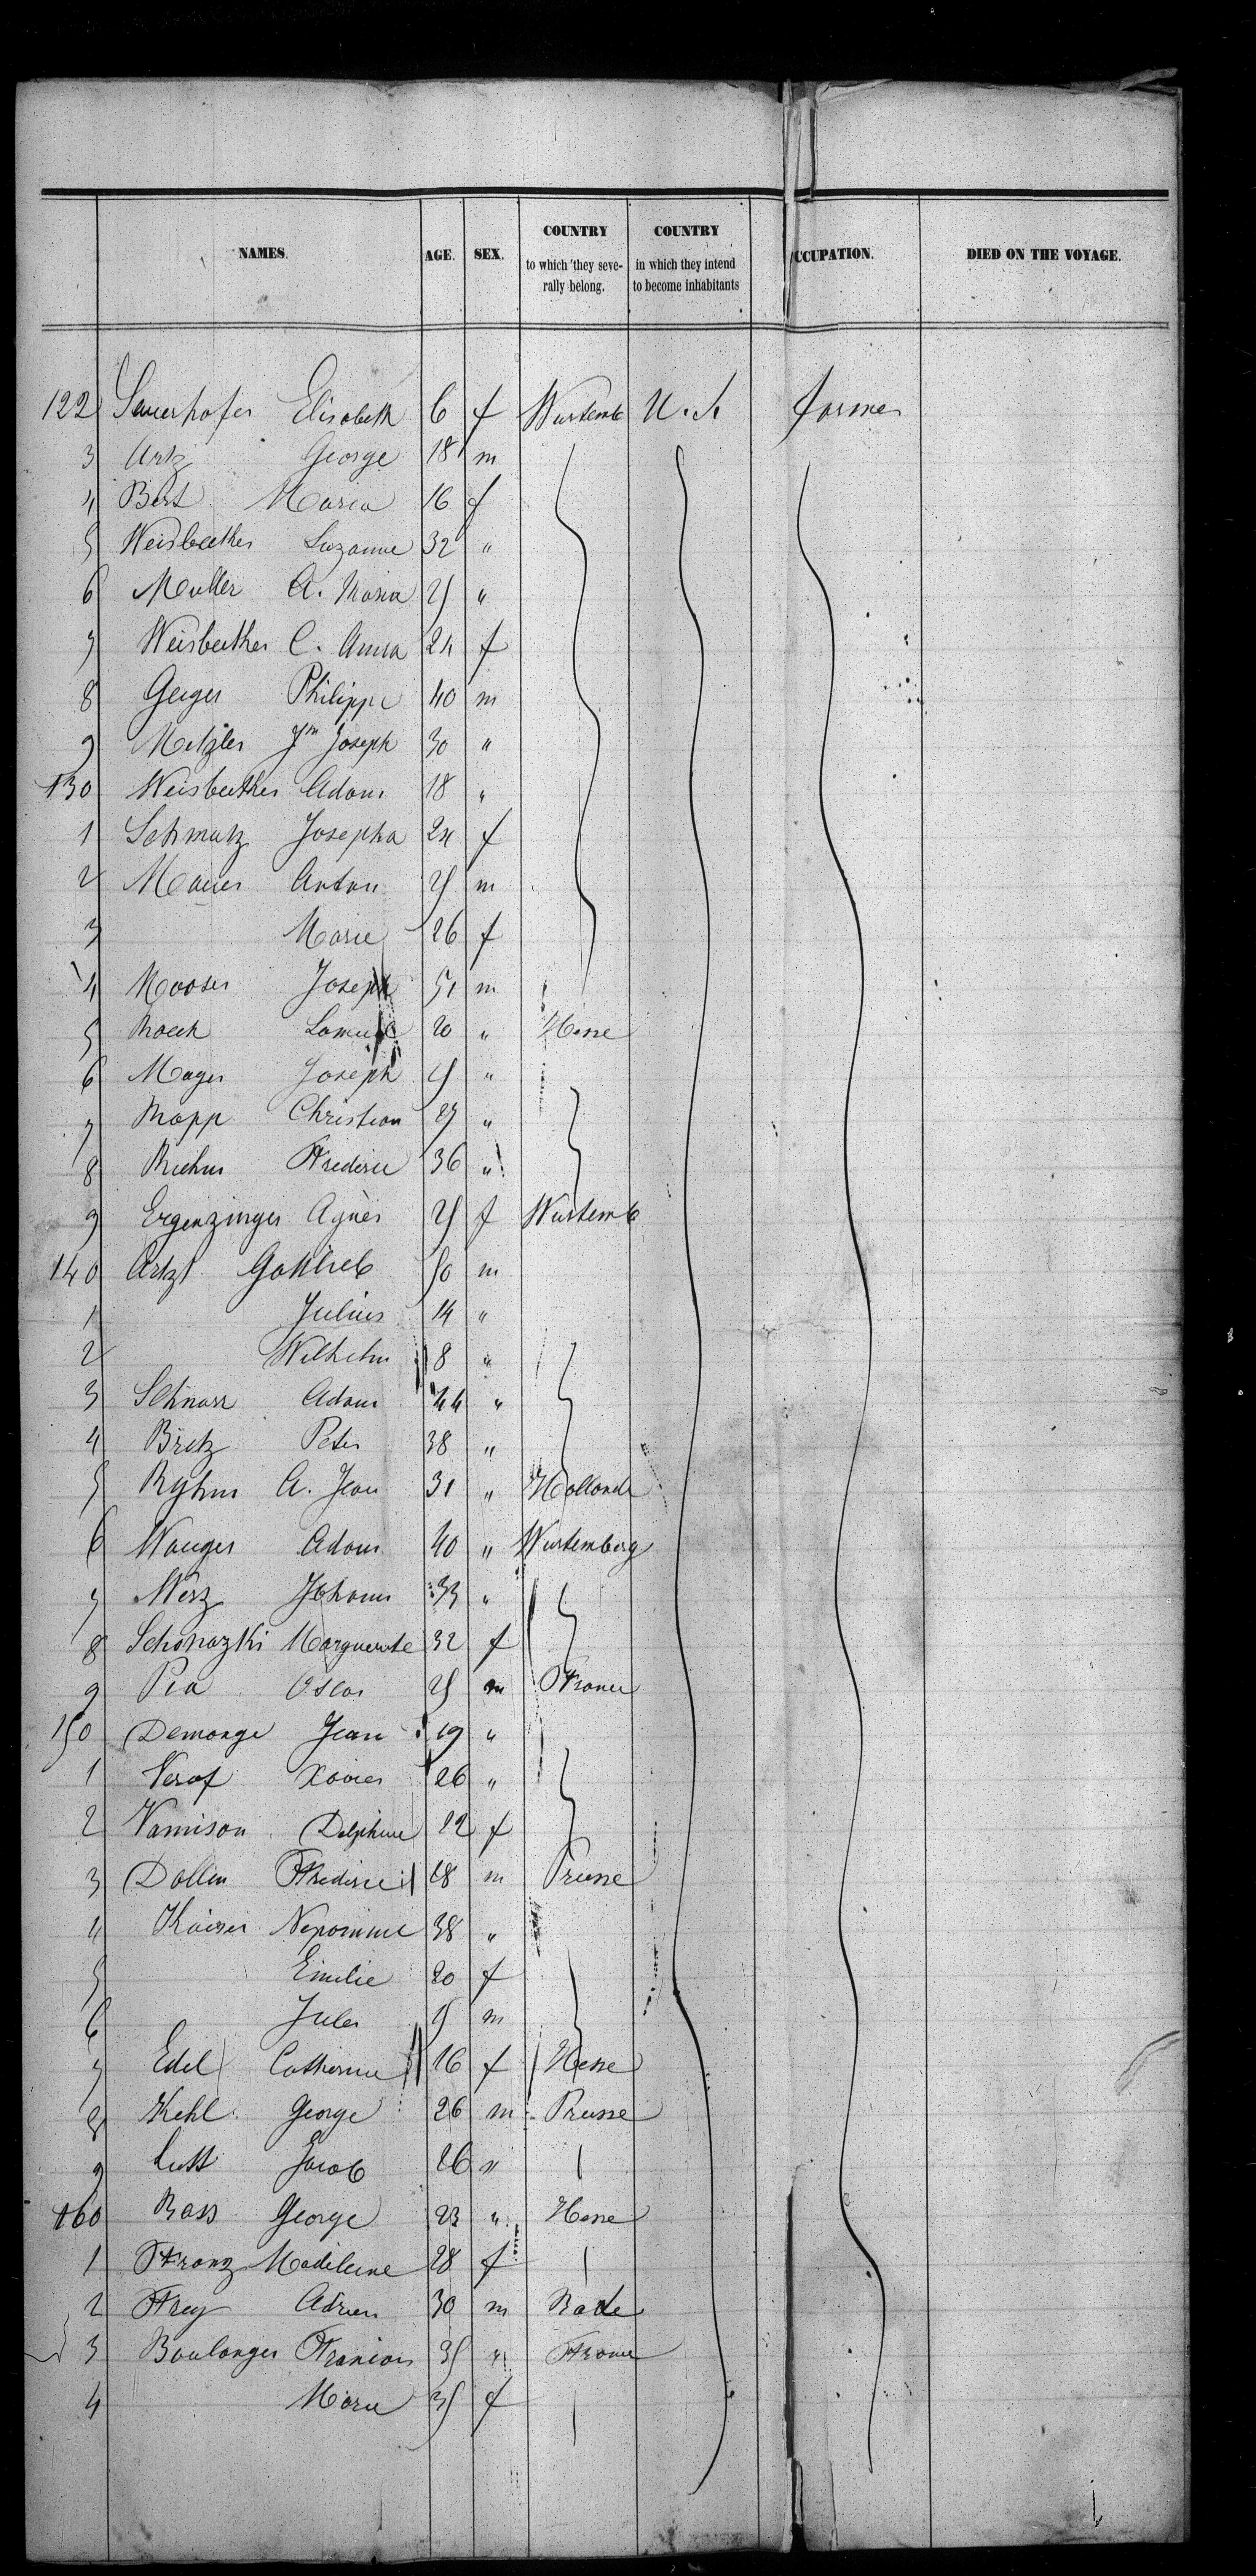 NAMES. AGE. SEX. COUNTRY to which they severally belong. COUNTRY in which they intend to become inhabitants OCCUPATION. DIED ON THE VOYAGE.
122 Elisabeth 6 f Wurtemb U. S. farmer
3 Artz George 18 m
4 Best Maria 16 f
5 Weisbecker Suzanne 32 "
6 Muller A. Maria 25 "
7 Weisbecker C. Anna 24 f
8 Geiger Philippe 40 m
9 Metzler Jn Joseph 30 "
130 Weisbecker Adam 18 "
1 Schmutz Josepha 24 f
2 Maurer Anton 25 m
3 Marie 26 f
4 Mooser Joseph 51 m
5 20 " Hesse
6 Mayer Joseph "
7 Rapp Christian 27 "
8 Riehm Frederic 36 "
9 Ergenzinger Agnès 25 f Wurtemb
140 Artzt Gottlieb 50 m
1 Julius 14 "
2 Wilhelm 8 "
3 Schnarr Adam 44 "
4 Bretz Peter 38 "
5 Ryhm A. Jean 31 " Hollande
6 Wanger Adam 40 " Wurtemberg
7 Merz Johann 33 "
8 Marguerite 32 f
9 Pea Oscar 25 m France
150 Demange Jean 19 "
1 Xavier 26 "
2 Vamison Delphine 22 f
3 Dollen Frederic 18 m Prusse
4 Kaiser Nepomuc 38 "
5 Emilie 20 f
6 Jules 9 m
7 Edel Catherine 16 f Hesse
8 Kehl George 26 m Prusse
9 Jacob 26 "
160 Bass George 23 " Hesse
1 Franz Madeleine 28 f
2 Frey Adrien 30 m Bade
3 Boulanger Francois 35 " France
4 Marie 35 f